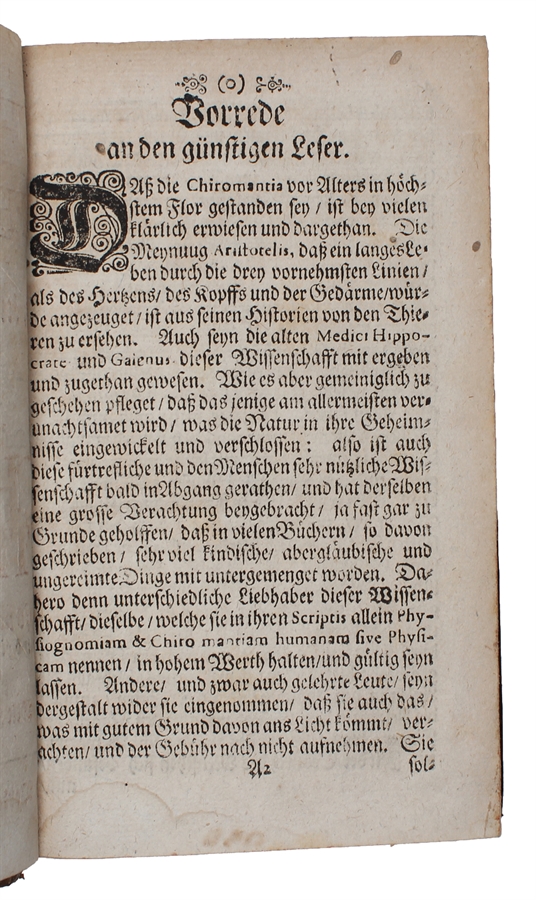 (o)
Vorrede
an den günstigen Leser.
DAß die Chiromantia vor Alters in höch-
stem Flor gestanden sey / ist bey vielen
klärlich erwiesen und dargethan. Die
Meynuug Aristotelis, daß ein langes Le-
ben durch die drey vornehmsten Linien /
als des Hertzens / des Kopffs und der Gedärme / wür-
de angezeuget / ist aus seinen Historien von den Thie-
ren zu ersehen. Auch seyn die alten Medici Hippo-
crate und Galenus dieser Wissenschafft mit ergeben
und zugethan gewesen. Wie es aber gemeiniglich zu
geschehen pfleget / daß das jenige am allermeisten ver-
unachtsamet wird / was die Natur in ihre Geheim-
nisse eingewickelt und verschlossen: also ist auch
diese fürtrefliche und den Menschen sehr nützliche Wis-
senschafft bald in Abgang gerathen / und hat derselben
eine grosse Verachtung beygebracht / ja fast gar zu
Grunde geholffen / daß in vielen Büchern / so davon
geschrieben / sehr viel kindische / abergläubische und
ungereimte Dinge mit untergemenget worden. Da-
hero denn unterschiedliche Liebhaber dieser Wissen-
schafft / dieselbe / welche sie in ihren Scriptis allein Phy-
siognomiam & Chiro mantiam humanam sive Physi-
cam nennen / in hohem Werth halten / und gültig seyn
lassen. Andere / und zwar auch gelehrte Leute / seyn
dergestalt wider sie eingenommen / daß sie auch das /
was mit gutem Grund davon ans Licht kömmt / ver-
achten / und der Gebühr nach nicht aufnehmen. Sie
A2 sol-